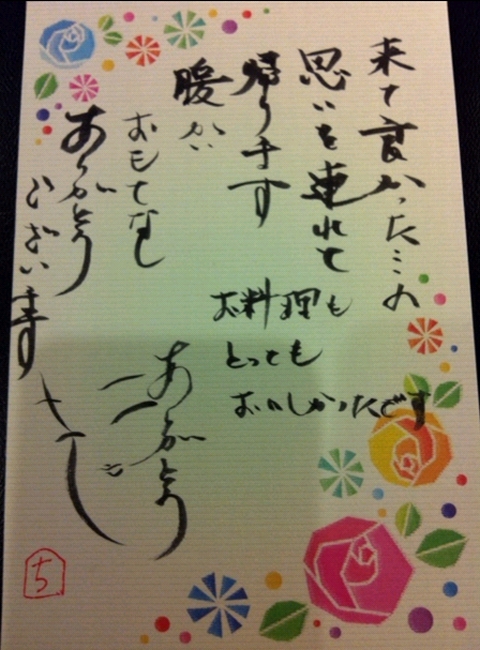 来て良かったこの
思いを連れて
帰ります
暖かい
おもてなし
ありがとう
ございます
お料理も
とっても
おいしかったです
ありがとう
ち